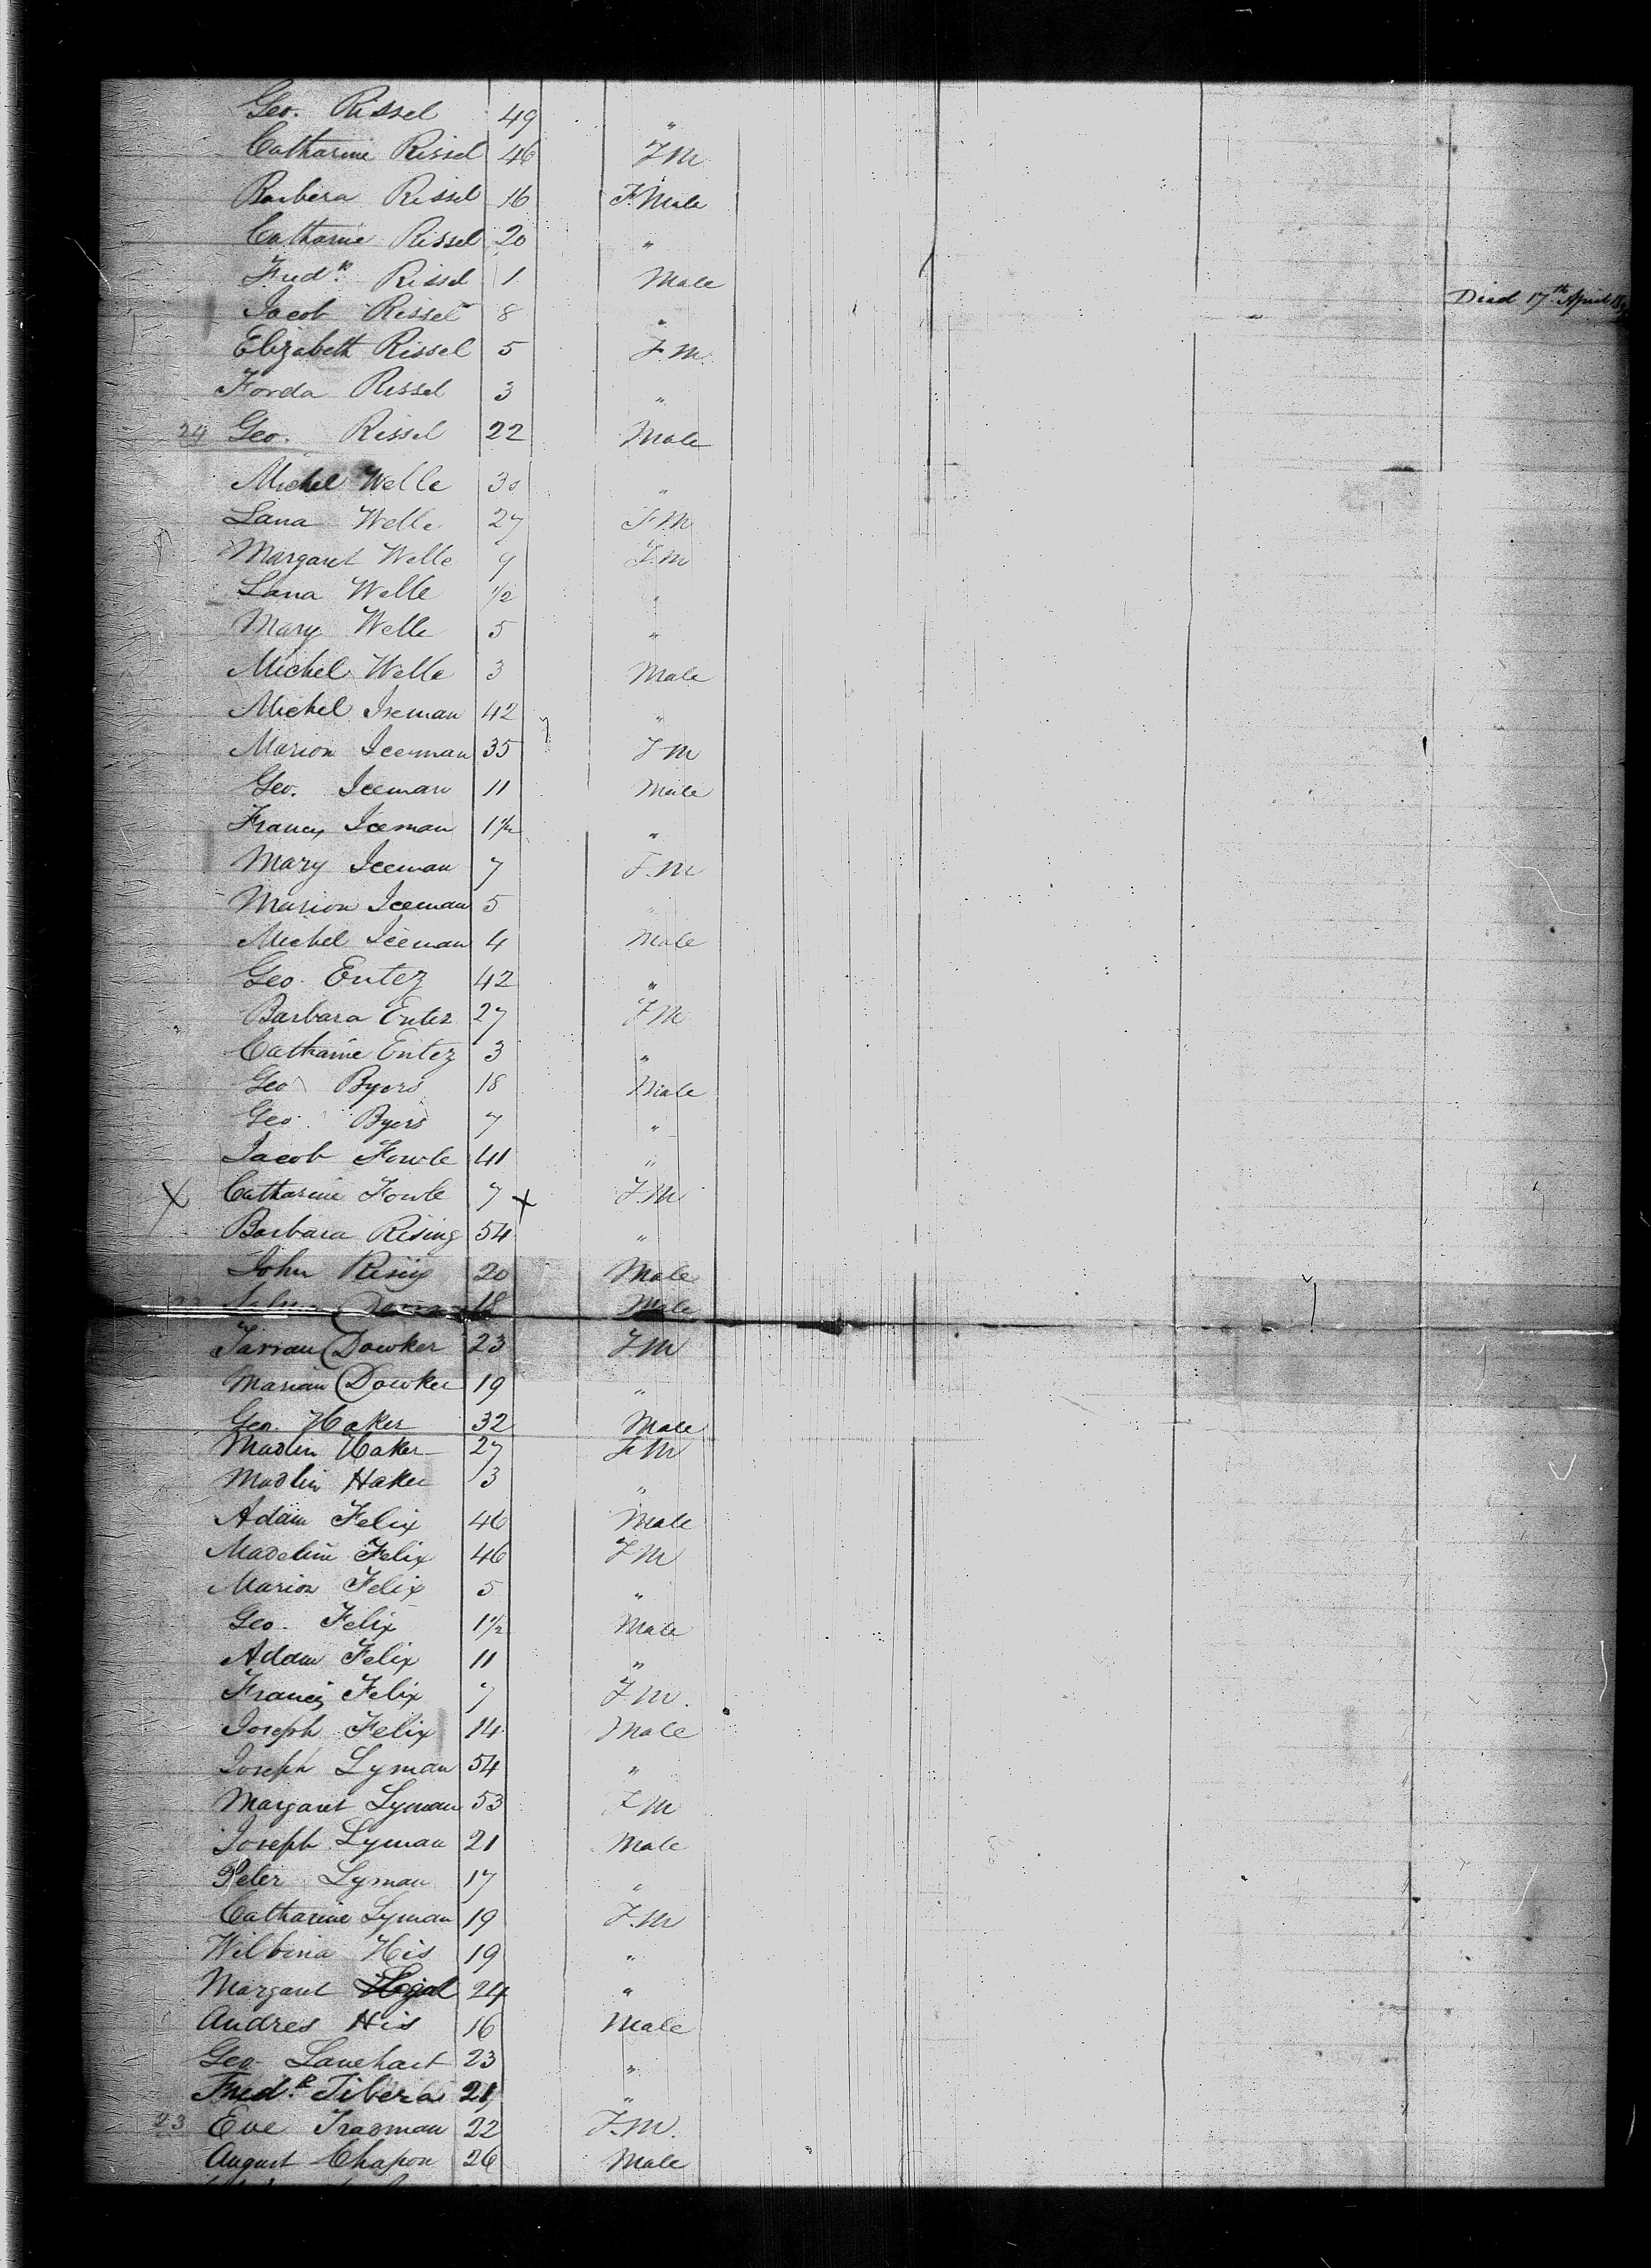 Geo. Rissel 49 "
Catharine Rissel 46 F M
Barbera Rissel 16 F. Male
Catharine Rissel 20 "
Fredk. Rissel 1 Male
Jacob Rissel 8 " Died 17th April
Elizabeth Rissel 5 F. M.
Forda Rissel 3 "
24 Geo. Rissel 22 Male
Michel Welle 30 "
Lana Welle 27 F. M
Margaret Welle 9 F. M
Lana Welle 1/2 "
Mary Welle 5 "
Michel Welle 3 Male
Michel Iseman 42 "
Marion Iceman 35 F M
Geo. Iceman 11 Male
Francis Iceman 1 1/2 "
Mary Iceman 7 F. M
Marion Iceman 5 "
Michel Iceman 4 Male
Geo. Entez 42 "
Barbara Entez 27 F M
Catharine Entez 3 "
Geo Byers 18 Male
Geo. Byers 7 "
Jacob Fowle 41 "
X Catharine Fowle 7 x F. M
Barbara Rising 54 "
John Rising 20 Male
18 Male
Dowker 23 F. M
Marian Dowker 19 "
Geo. Haker 32 Male
Madlin Haker 27 F M
Madlin Haker 3 "
Adam Felix 46 Male
Madeline Felix 46 F M
Marion Felix 5 "
Geo. Felix 1 1/2 Male
Adam Felix 11 "
Francis Felix 7 F. M.
Joseph Felix 14 Male
Joseph Lyman 54 "
Margaret Lyman 53 F M
Joseph Lyman 21 Male
Peter Lyman 17 "
Catharine Lyman 19 F. M
Wilbina His 19 "
Margaret 24 "
Andres His 16 Male
Geo. Lanehart 23 "
Fredk. Tibera 21 "
23 Eve Trasman 22 F. M.
August Chapon 26 Male